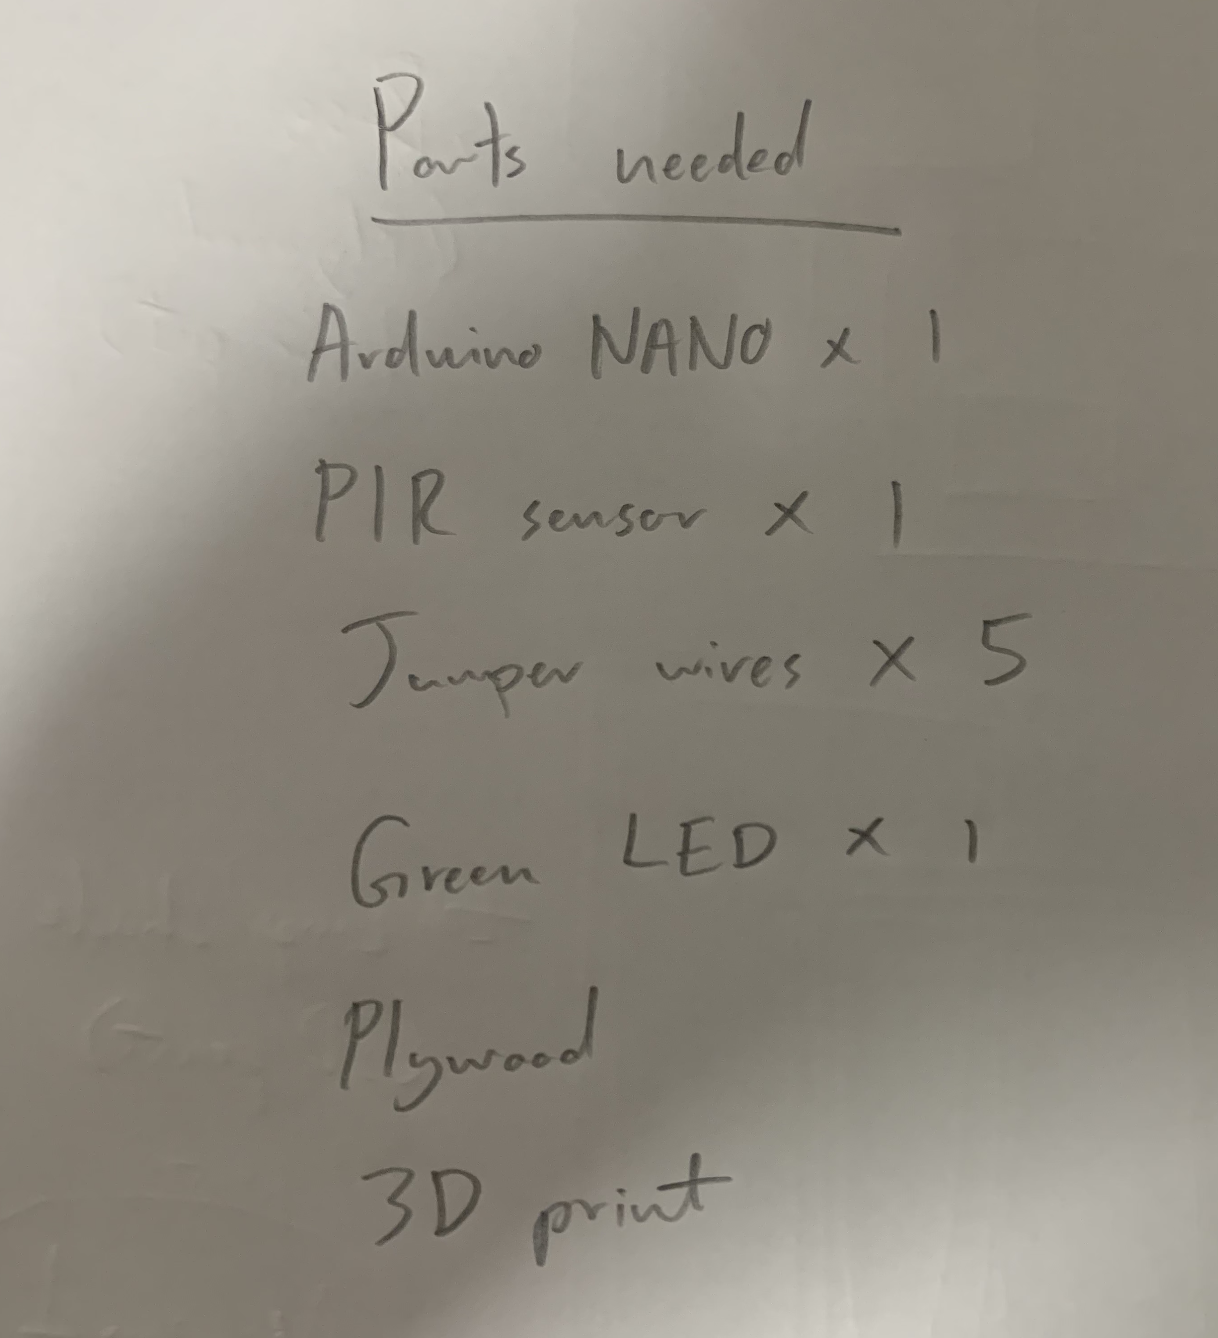 Parts needed
Arduino NANO x 1
PIR sensor x 1
Jumper wires x 5
Green LED x 1
Plywood
3D print